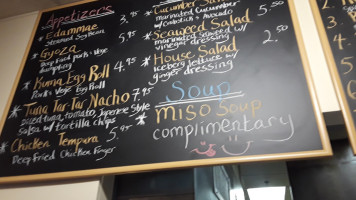 Appetizers
* Edammae 3.95
Steamed Soy Bean
* Gyoza 5.
Deep Fried pork + Vege
dumpling
* Kuma Egg Roll 4.95
Pork + Vege Egg Roll
* Tuna Tar-Tar Nacho 7.95
diced tuna, tomato, Japanese style
salsa w/ tortilla chips
* Chicken Tempura 5.95
Deep Fried Chicken Finger
* Cucumber
marinated Cucumber
w/ Avocado
* Seaweed Salad 5.50
marinated Seaweed w/
vinegar dressing
* House Salad 2.50
Iceberg lettuce w/
ginger dressing
Soup
miso Soup
complimentary